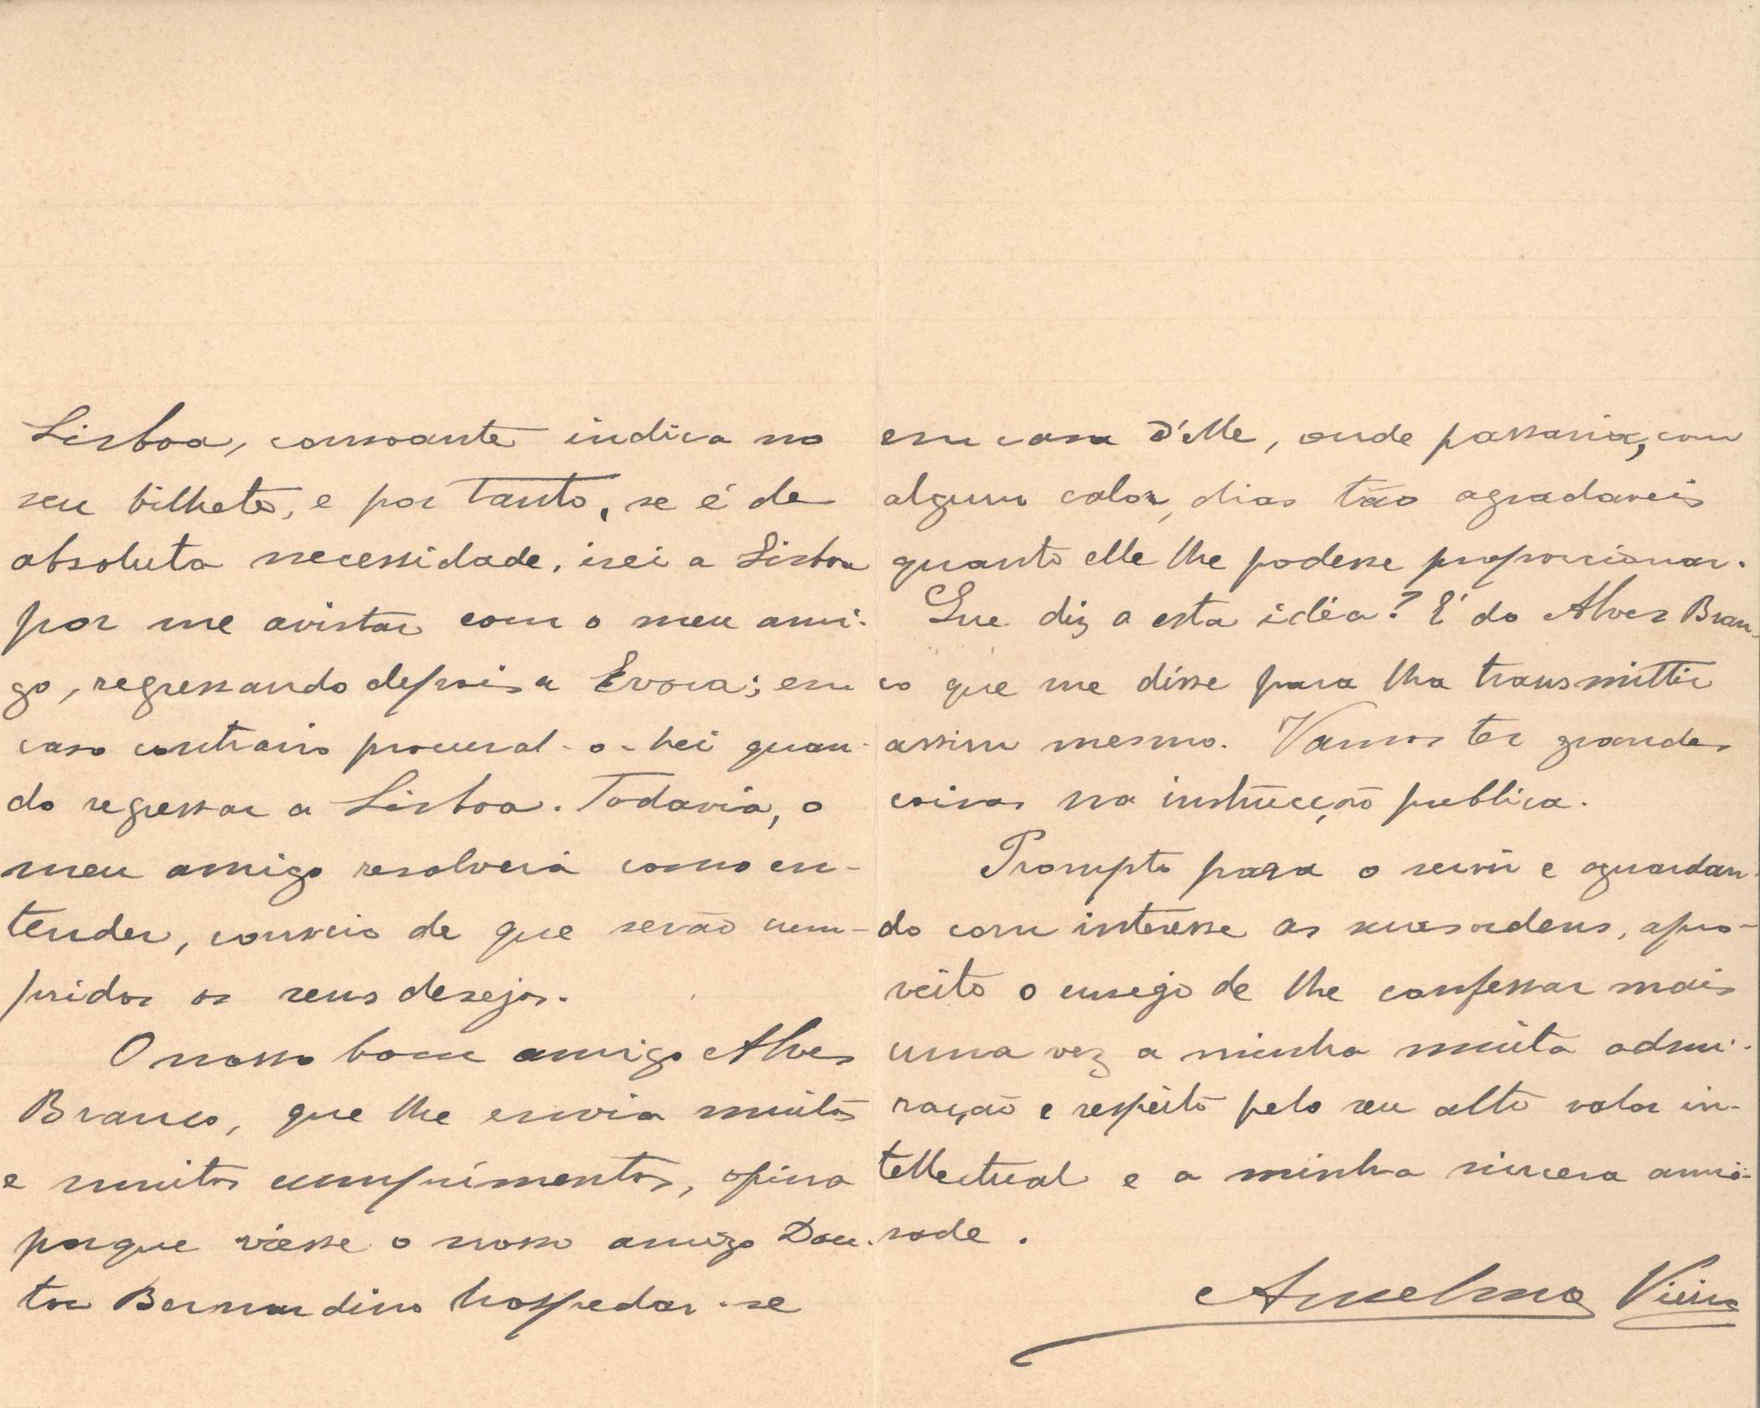 Lisboa, consoante indica no
seu bilhete, e por tanto, se é de
absoluta necessidade, irei a Lisboa
por me avistar com o meu ami-
go, regressando depois a Evora; em
caso contrario procural-o-hei quan-
do regressar a Lisboa. Todavia, o
meu amigo resolverá como en-
tender, convicto de que serão cum-
pridos os seus desejos.
O nosso bom amigo Alves
Branco, que lhe envia muitos
e muitos cumprimentos, opina
porque viesse o nosso amigo Dou-
tor Bernardino hospedar-se
em casa d'elle, onde passaria, com
algum calor, dias tão agradaveis
quanto elle lhe podesse proporcionar.
Que diz a esta idéa? É do Alves Bran-
co que me disse para lha transmittir
assim mesmo. Vamos ter grandes
coisas na instrucção publica.
Prompto para o servir e aguardan-
do com interesse as suas ordens, apro-
veito o ensejo de lhe confessar mais
uma vez a minha muita admi-
ração e respeito pelo seu alto valor in-
tellectual e a minha sincera ami-
sade.
Anselmo Vieira